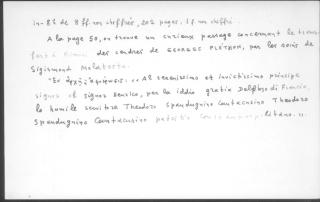 in-8º de 8 ff. non chiffrés, 202 pages. 1 f. non chiffré.
A la page 50, on trouve un curieux passage concernant le trans-
fert à Rimini des cendres de GEORGES PLÉTHON, par les soins de
Sigismond Malatesta.
al serenissimo et invictissimo principe
signor el signor Henrico, per la iddio gratia Delphino di Francia,
lo humile servitore Theodoro Spandugnino Cantacusino Theodoro
Spandugnino Cantacusino patritio Constantinopolitano.